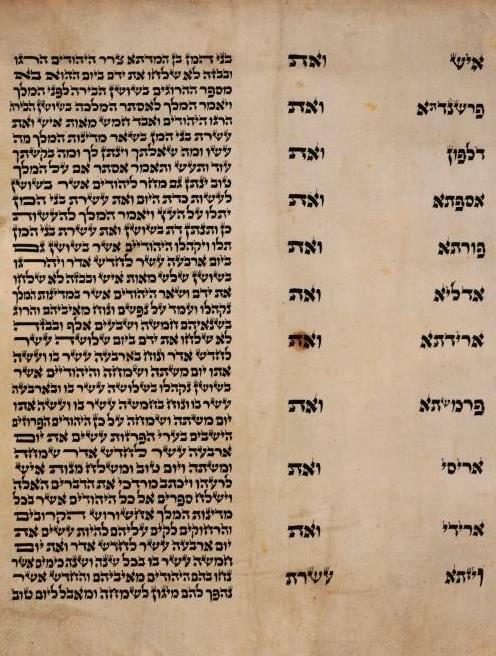 איש ואת
פרשנדתא ואת
דלפון ואת
אספתא ואת
פורתא ואת
אדליא ואת
ארידתא ואת
פרמשתא ואת
אריסי ואת
ארידי ואת
ויזתא עשרת
בני המן בן המדתא צרר היהודים הרגו
ובבזה לא שלחו את ידם ביום ההוא בא
מספר ההרוגים בשושן הבירה לפני המלך
ויאמר המלך לאסתר המלכה בשושן הבירה
הרגו היהודים ואבד חמש מאות איש ואת
עשרת בני המן בשאר מדינות המלך מה
עשו ומה שאלתך וינתן לך ומה בקשתך
עוד ותעש ותאמר אסתר אם על המלך
טוב ינתן גם מחר ליהודים אשר בשושן
לעשות כדת היום ואת עשרת בני המן
יתלו על העץ ויאמר המלך להעשות
כן ותנתן דת בשושן ואת עשרת בני המן
תלו ויקהלו היהודיים אשר בשושן גם
ביום ארבעה עשר לחדש אדר ויהרגו
בשושן שלש מאות איש ובבזה לא שלחו
את ידם ושאר היהודים אשר במדינות המלך
נקהלו ועמד על נפשם ונוח מאיביהם והרוג
בשנאיהם חמשה ושבעים אלף ובבזה
לא שלחו את ידם ביום שלושה עשר
לחדש אדר ונוח בארבעה עשר בו ועשה
אתו יום משתה ושמחה והיהודיים אשר
בשושן נקהלו בשלושה עשר בו ובארבעה
עשר בו ונוח בחמשה עשר בו ועשה אתו
יום משתה ושמחה על כן היהודים הפרוזים
הישבים בערי הפרזות עשים את יום
ארבעה עשר לחדש אדר שמחה
ומשתה ויום טוב ומשלח מנות איש
לרעהו ויכתב מרדכי את הדברים האלה
וישלח ספרים אל כל היהודים אשר בכל
מדינות המלך אחשורוש הקרובים
והרחוקים לקים עליהם להיות עשים את
יום ארבעה עשר לחדש אדר ואת יום
חמשה עשר בו בכל שנה ושנה כימים אשר
נחו בהם היהודים מאיביהם והחדש אשר
נהפך להם מיגון לשמחה ומאבל ליום טוב